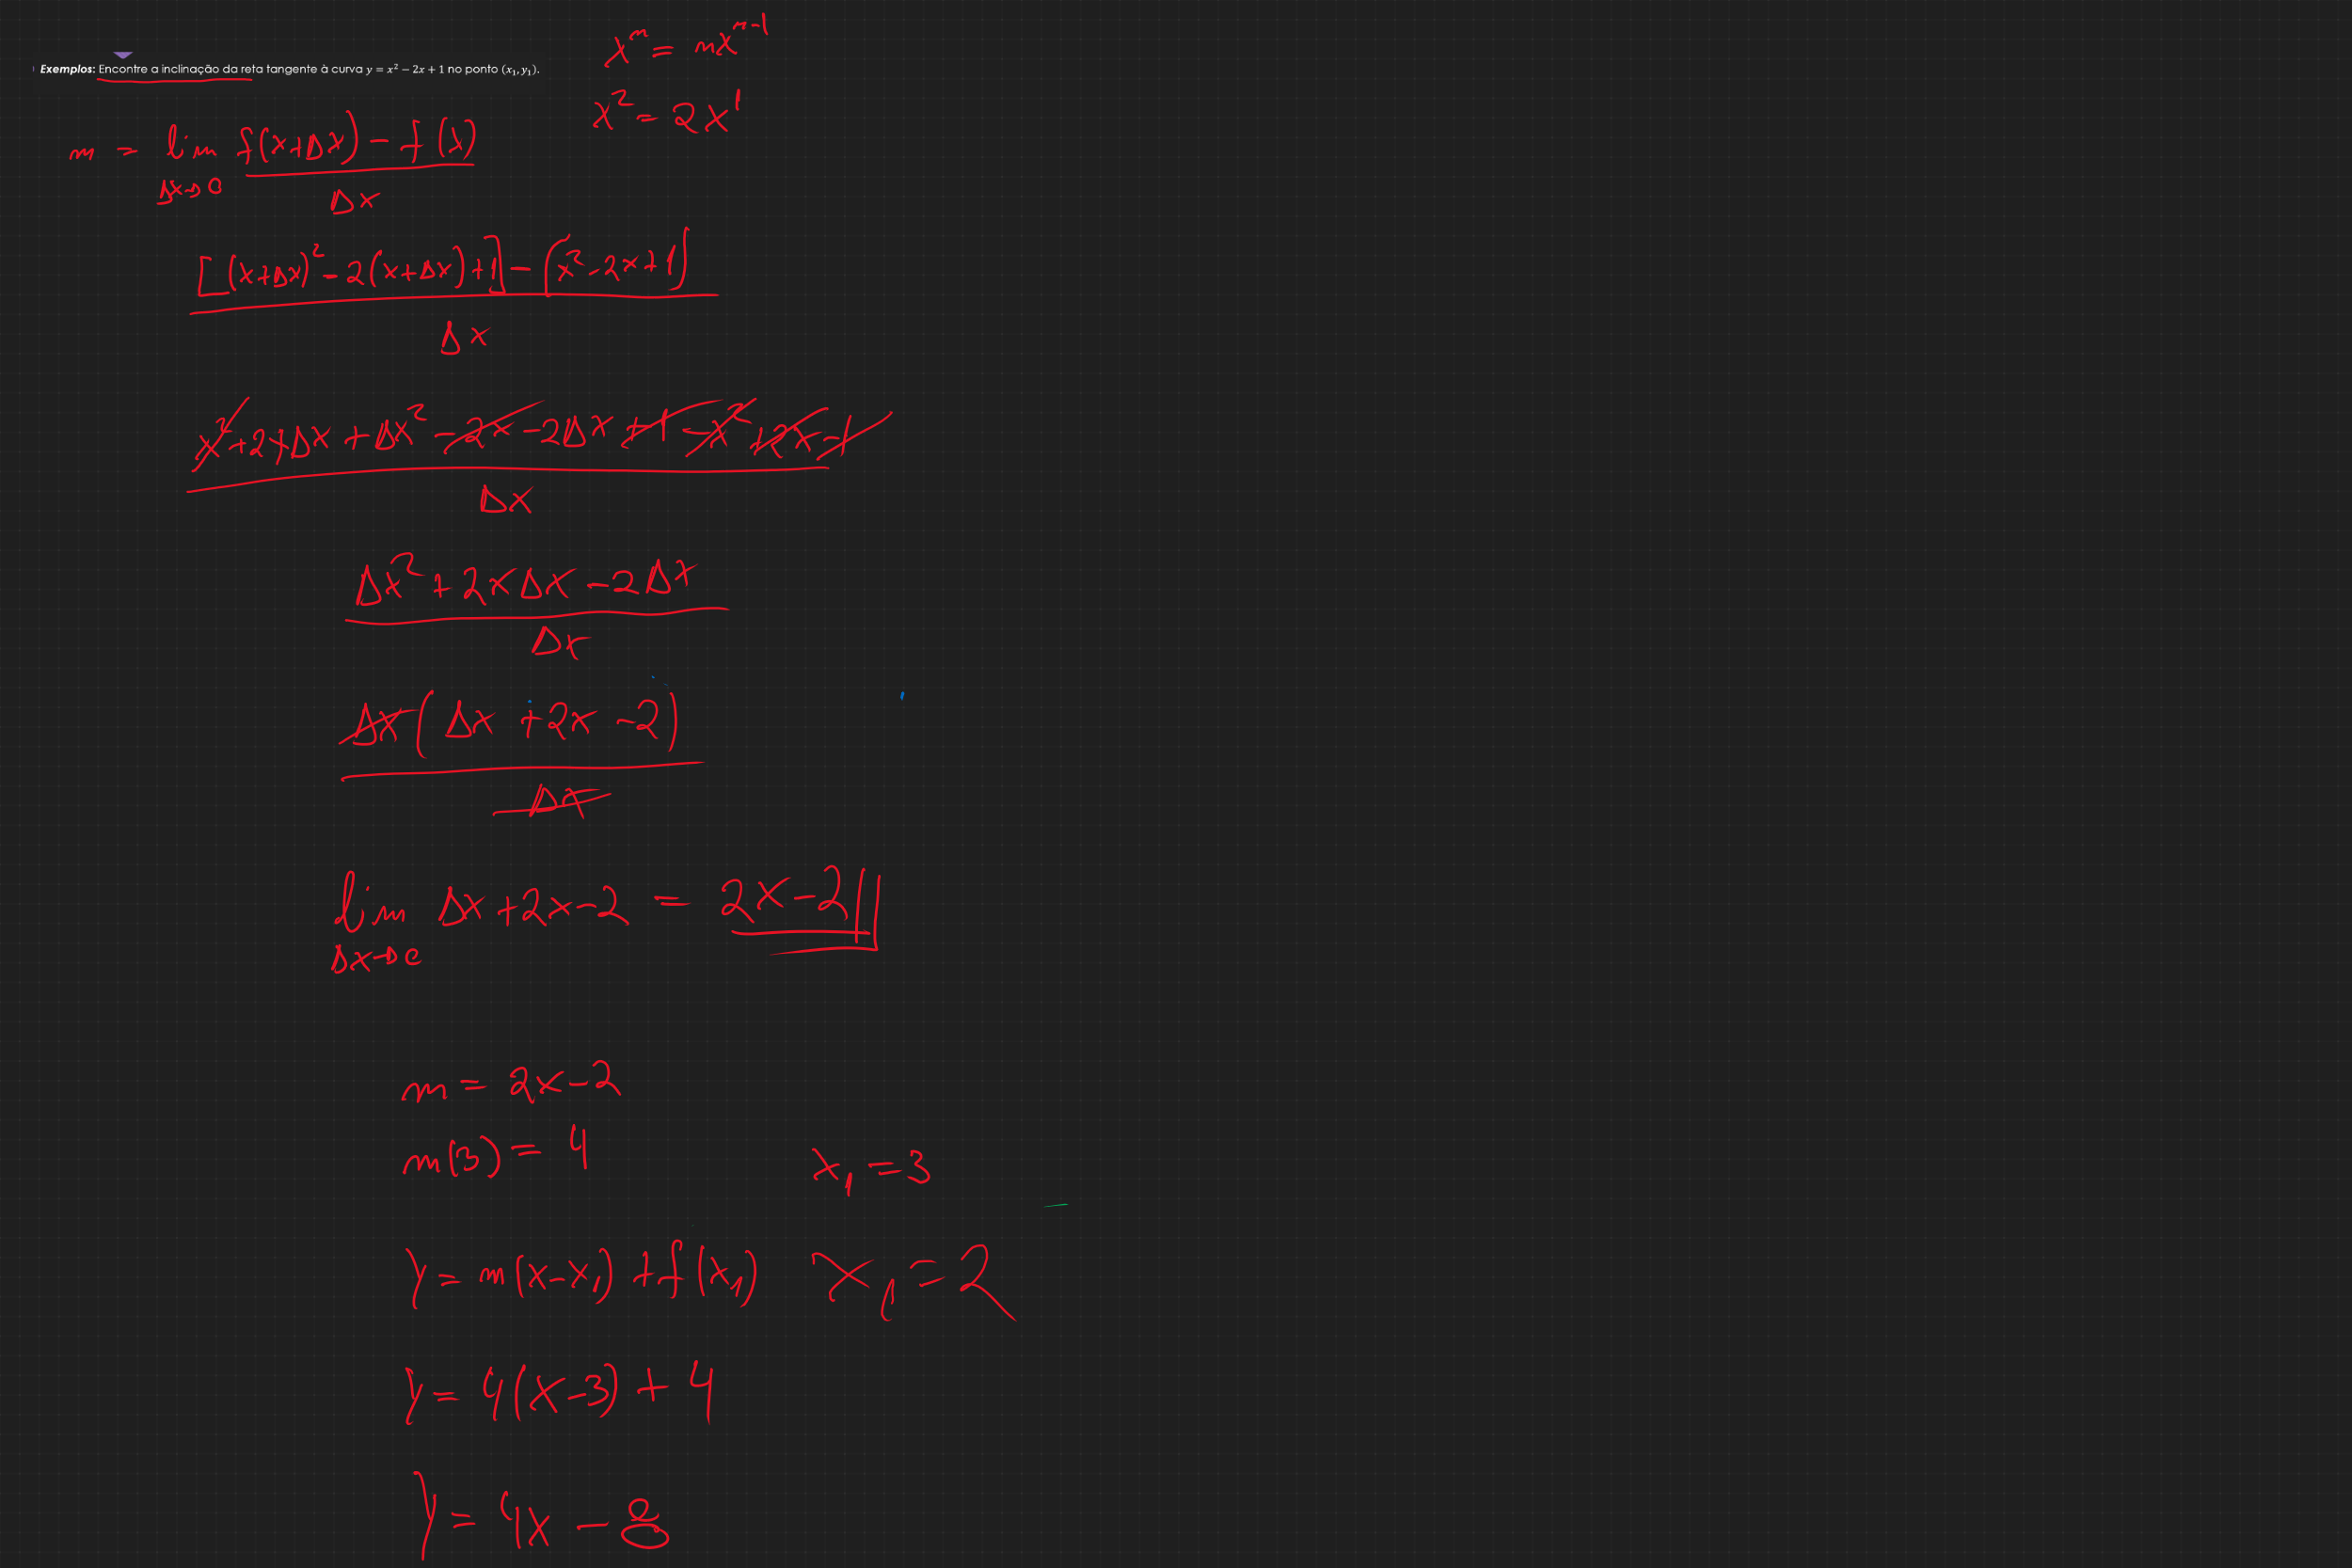 Exemplos: Encontre a inclinação da reta tangente à curva y = x² − 2x + 1 no ponto (x₁, y₁).
xⁿ = nxⁿ⁻¹
x² = 2x¹
m = lim f(x+Δx) − f(x)
Δx→0 Δx
[(x+Δx)² − 2(x+Δx) + 1] − (x² − 2x + 1]
Δx
x² + 2xΔx + Δx² − 2x − 2Δx + 1 − x² + 2x − 1
Δx
Δx² + 2xΔx − 2Δx
Δx
Δx(Δx + 2x − 2)
Δx
lim Δx + 2x − 2 = 2x − 2
Δx→0
m = 2x − 2
m(3) = 4
x₁ = 3
y = m(x − x₁) + f(x₁)
x₁ = 2
y = 4(x − 3) + 4
y = 4x − 8